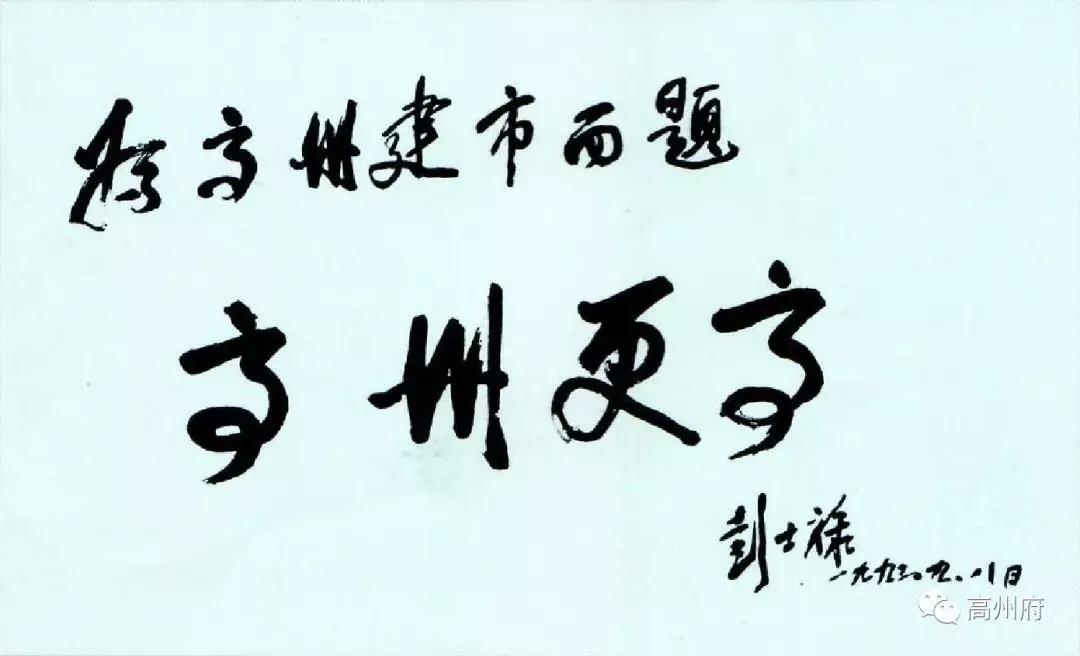 高州建市而题
高州更高
彭士禄
一九九三.九.八日
高州府